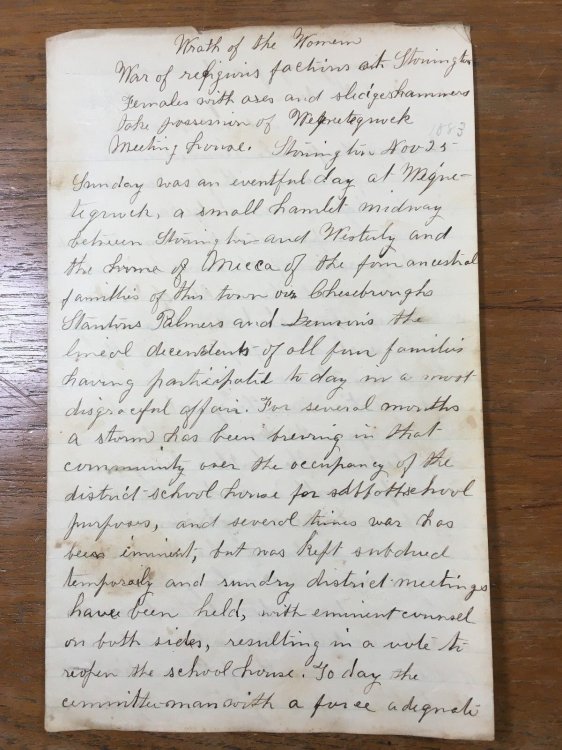 Wrath of the Women
War of religious factions at Stonington
Females with axes and sledgeshammers
take possession of Wequetequock
Meeting house. Stonington Nov 25
1883
Sunday was an eventful day at Wique-
tequock, a small hamlet midway
between Stonington and Westerly and
the home of Mecca of the four ancestral
families of this town our Chesebroughs
Stantons Palmers and Denisons the
lineol decendents of all four families
having participated to day in a most
disgraceful affair. For several months
a storm has been brewing in that
community over the occupancy of the
district school house for sabbath school
purposes, and several times war has
been iminent, but was kept subdued
temporaily and sundry district meetings
have been held, with eminent counsel
on both sides, resulting in a vote to
reopen the school house. To day the
committeeman with a force adequate